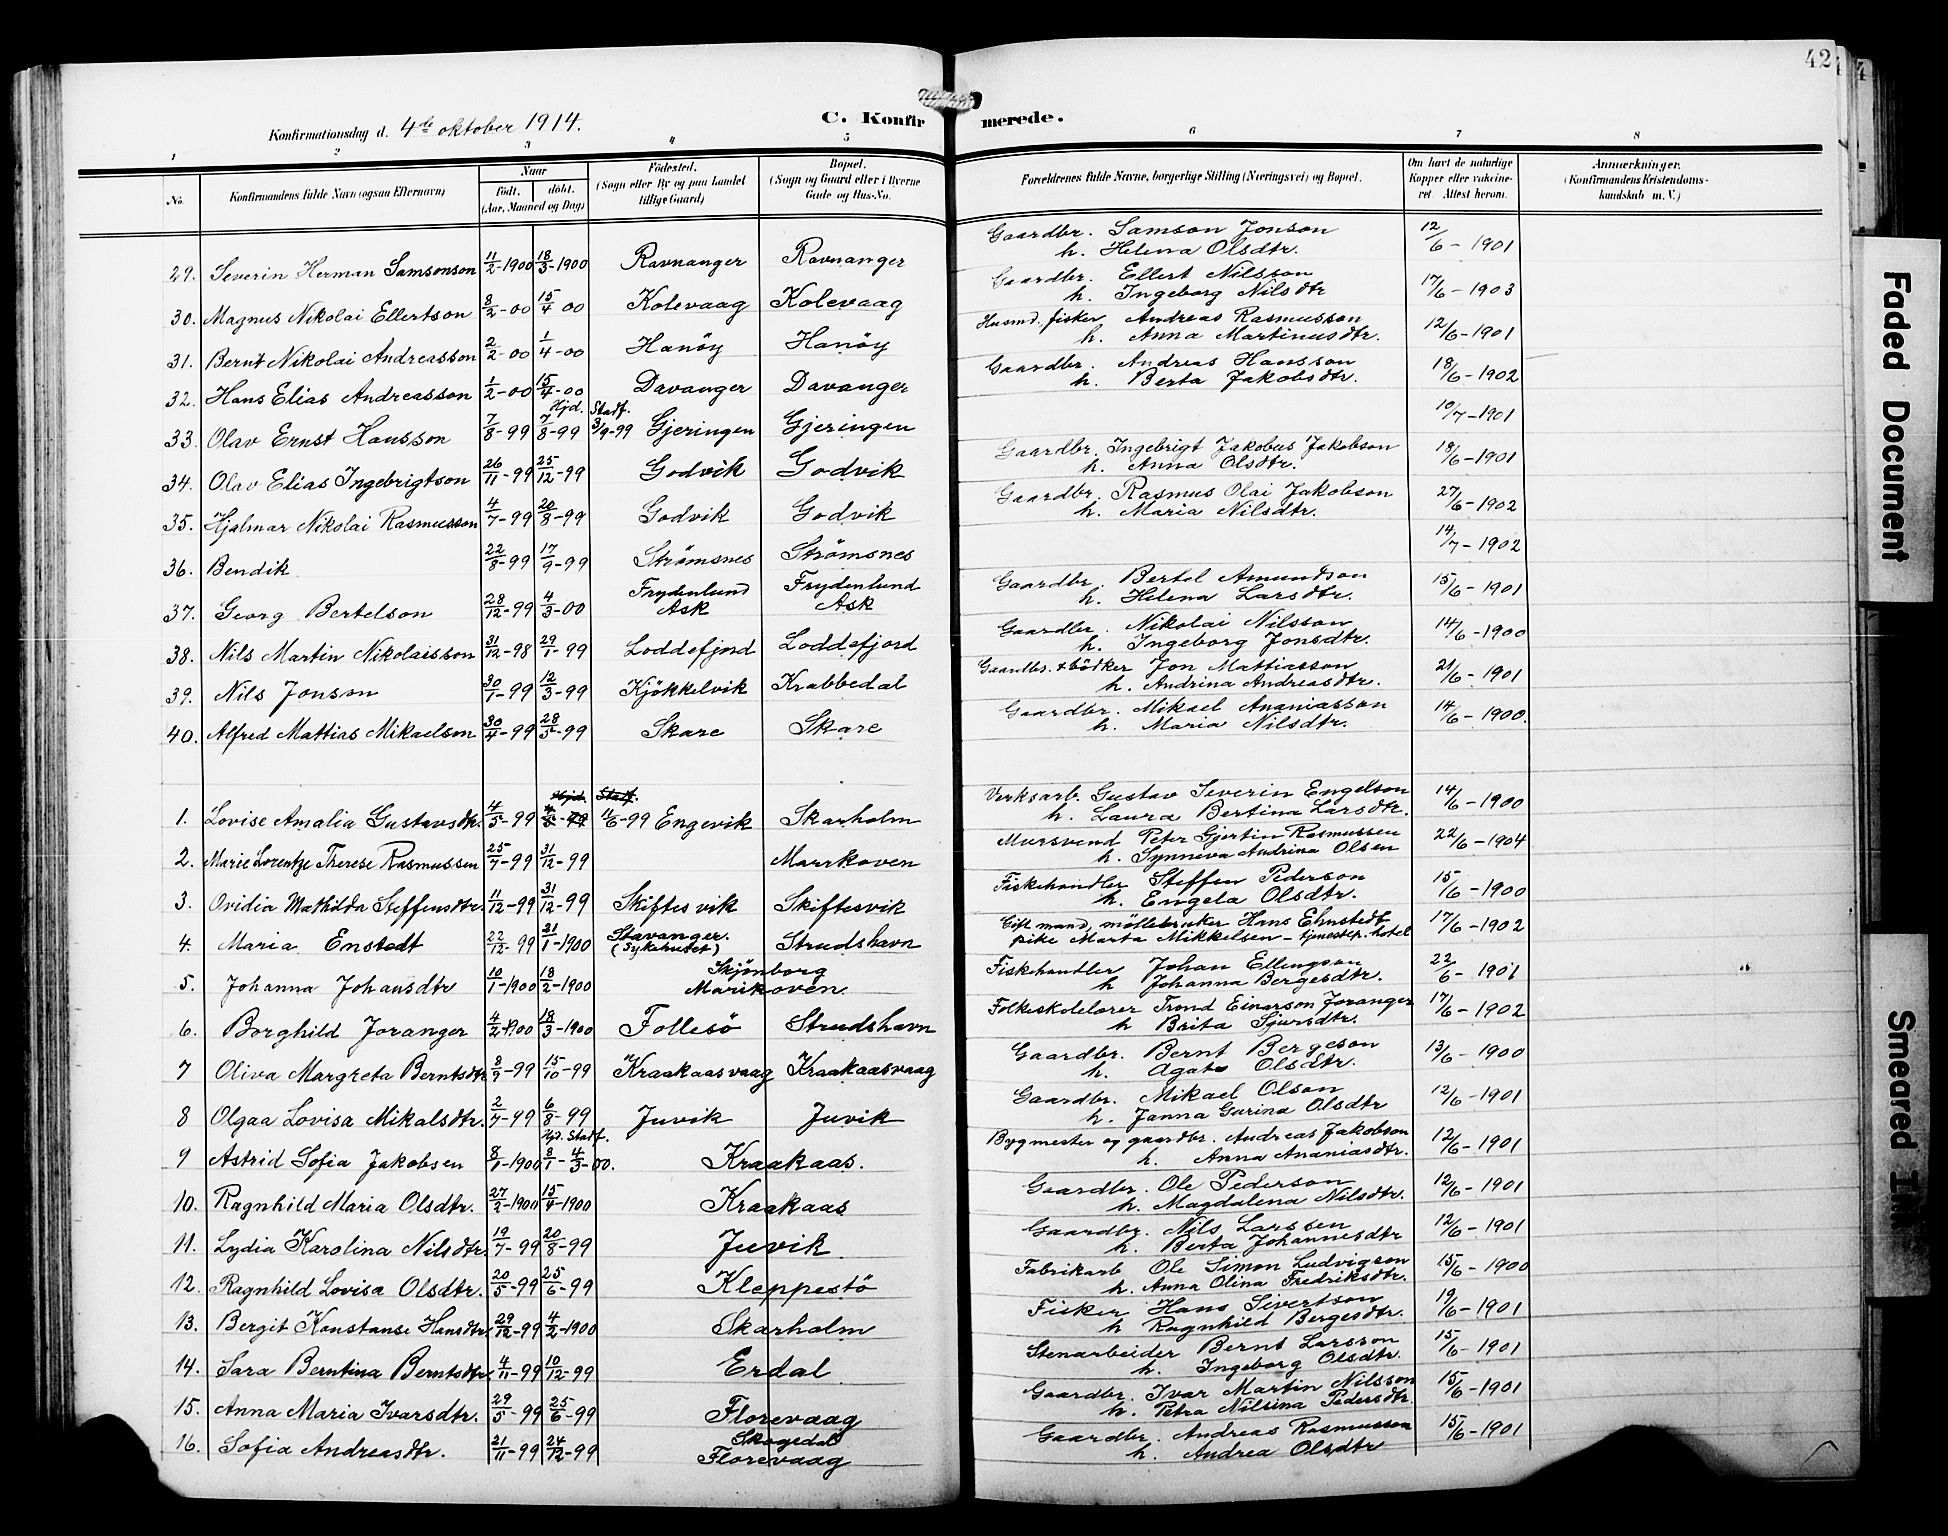 42
Konfirmationsdag d. 4de oktober 1914.
C. Konfirmerede.
1 2 3 4 5 6 7 8
No.
Konfirmandens fulde Navn (ogsaa Efternavn)
Naar
födt. döbt.
(Aar, Maaned og Dag)
Födested.
(Sogn eller By og paa Landet
tillige Gaard)
Bopæl.
(Sogn og Gaard eller i Byerne
Gade og Hus-No.
Forældrenes fulde Navne, borgerlige Stilling (Næringsvei) og Bopæl.
Om havt de naturlige
Kopper eller vakcine-
ret. Attest herom.
Anmærkninger.
(Konfirmandens Kristendoms-
kundskab m. V.)
29. Severin Herman Samsonson 11/2-1900 18/3-1900 Ravnanger Ravnanger Gaardbr. Samson Jonson 12/6-1901
h. Helena Olsdtr.
30. Magnus Nikolai Ellertson 8/2-00 15/4 00 Kolevaag Kolevaag Gaardbr. Ellert Nilsson 17/6-1903
h. Ingeborg Nilsdtr
31. Bernt Nikolai Andreasson 2/2-00 1/4-00 Hanöy Hanöy Husmd. fisker Andreas Rasmusson 12/6-1901
h. Anna Martinusdtr.
32. Hans Elias Andreasson 1/2-00 15/4-00 Davanger Davanger Gaardbr. Andreas Hansson 18/6-1902
h. Berta Jakobsdtr.
Hjd. Stadf.
33. Olav Ernst Hansson 7/8-99 7/8-99 3/9-99 Gjeringen Gjeringen 10/7-1901
34. Olav Elias Ingebrigtson 26/11-99 25/12-99 Godvik Godvik Gaardbr. Ingebrigt Jakobus Jakobson 18/6-1901
h. Anna Olsdtr.
35. Hjalmar Nikolai Rasmusson 4/7-99 20/8-99 Godvik Godvik Gaardbr. Rasmus Olai Jakobson 27/6-1902
h. Maria Nilsdtr.
36. Bendik 22/8-99 17/9-99 Strömsnes Strömsnes 14/7-1902
37. Georg Bertelson 28/12-99 4/3-00 Frydenlund Ask Frydenlund Ask Gaardbr. Bertel Amundson 15/6-1901
h. Helena Larsdtr.
38. Nils Martin Nikolaisson 31/12-98 29/1-99 Loddefjord Loddefjord Gaardbr. Nikolai Nilsson 14/6-1900
h. Ingeborg Jonsdtr.
39. Nils Jonson 30/1-99 12/3-99 Kjökkelvik Krabbedal Gaardbr. + bödker Jon Mattiasson 21/6-1901
h. Andrina Andreasdtr.
40. Alfred Mattias Mikaelson 30/4-99 28/5-99 Skare Skare Gaardbr. Mikael Ananiasson 14/6-1900.
h. Maria Nilsdtr.
Hjd. Stadf.
1. Lovise Amalia Gustavsdtr. 4/5-99 11/6-99 Engevik Skarholm Verksarb. Gustav Severin Engelson 14/6-1900
h. Laura Bertina Larsdtr.
2. Marie Lorentze Therese Rasmussen 25/7-99 31/12-99 Marrkoven Mursvend Peter Gjertin Rasmussen 22/6-1904
h. Synneva Andrina Olsen
3. Ovidia Mathilda Steffensdtr. 11/12-99 31/12-99 Skiftesvik Skiftesvik Fiskehandler Steffen Pederson 15/6-1900
h. Engela Olsdtr.
4. Maria Enstedt 22/12-99 21/1-1900 Stavanger. (Sykehuset) Strudshavn Gift mand, möllebruker Hans Ehnstedt 17/6-1902
pike Marta Mikkelsen - tjenestep. hotel
5. Johanna Johansdtr 10/1-1900 18/2-1900 Skjönborg Marikoven. Fiskehandler Johan Ellingson 22/6-1901
h Johanna Bergesdtr.
6. Borghild Joranger 4/2-1900 18/3-1900 Follesö Strudshavn Folkeskolelærer Trond Einarson Joranger 17/6-1902
h Brita Sjursdtr.
7 Oliva Margreta Berntsdtr 8/9-99 15/10-99 Kraakaasvaag Kraakaasvaag Gaardbr. Bernt Bergeson 13/6-1900
h. Agate Olsdtr.
8 Olgaa Lovisa Mikalsdtr. 2/7-99 6/8-99 Juvik Juvik Gaardbr. Mikael Olson 12/6-1901
h. Janna Gurina Olsdtr
Hjd. Stadf.
9 Astrid Sofia Jakobsen 8/1-1900 8/1- 4/3-00. Kraakaas. Bygmester og gaardbr. Andreas Jakobson 12/6-1901
h. Anna Ananiasdtr.
10. Ragnhild Maria Olsdtr. 27/2-1900 15/4-1900 Kraakaas Gaardbr. Ole Pederson 12/6-1901
h. Magdalena Nilsdtr.
11. Lydia Karolina Nilsdtr. 19/7-99 20/8-99 Juvik. Gaardbr. Nils Larssen 12/6-1901
h. Berta Johannesdtr
12. Ragnhild Lovisa Olsdtr. 20/5-99 25/6-99 Kleppestö Fabrikarb Ole Simon Ludvigson 15/6-1900
h. Anna Olina Fredriksdtr.
13. Bergit Konstanse Hansdtr. 29/12-99 4/2-1900 Skarholm Fisker Hans Sivertson 19/6-1901
h Ragnhild Bergesdtr.
14. Sara Berntina Berntsdtr. 4/11-99 10/12-99 Erdal Stenarbeider Bernt Larsson 15/6-1901
h. Ingeborg Olsdtr.
15. Anna Maria Ivarsdtr. 29/5-99 25/6-99 Florevaag Gaardbr. Ivar Martin Nilsson 15/6-1901
h. Petra Nilsina Pedersdtr.
16. Sofia Andreasdtr. 21/11-99 24/12-99 Skogedal Florevaag Gaardbr. Andreas Rasmusson 15/6-1901
h. Andrea Olsdtr
Faded Document
Smeared Ink